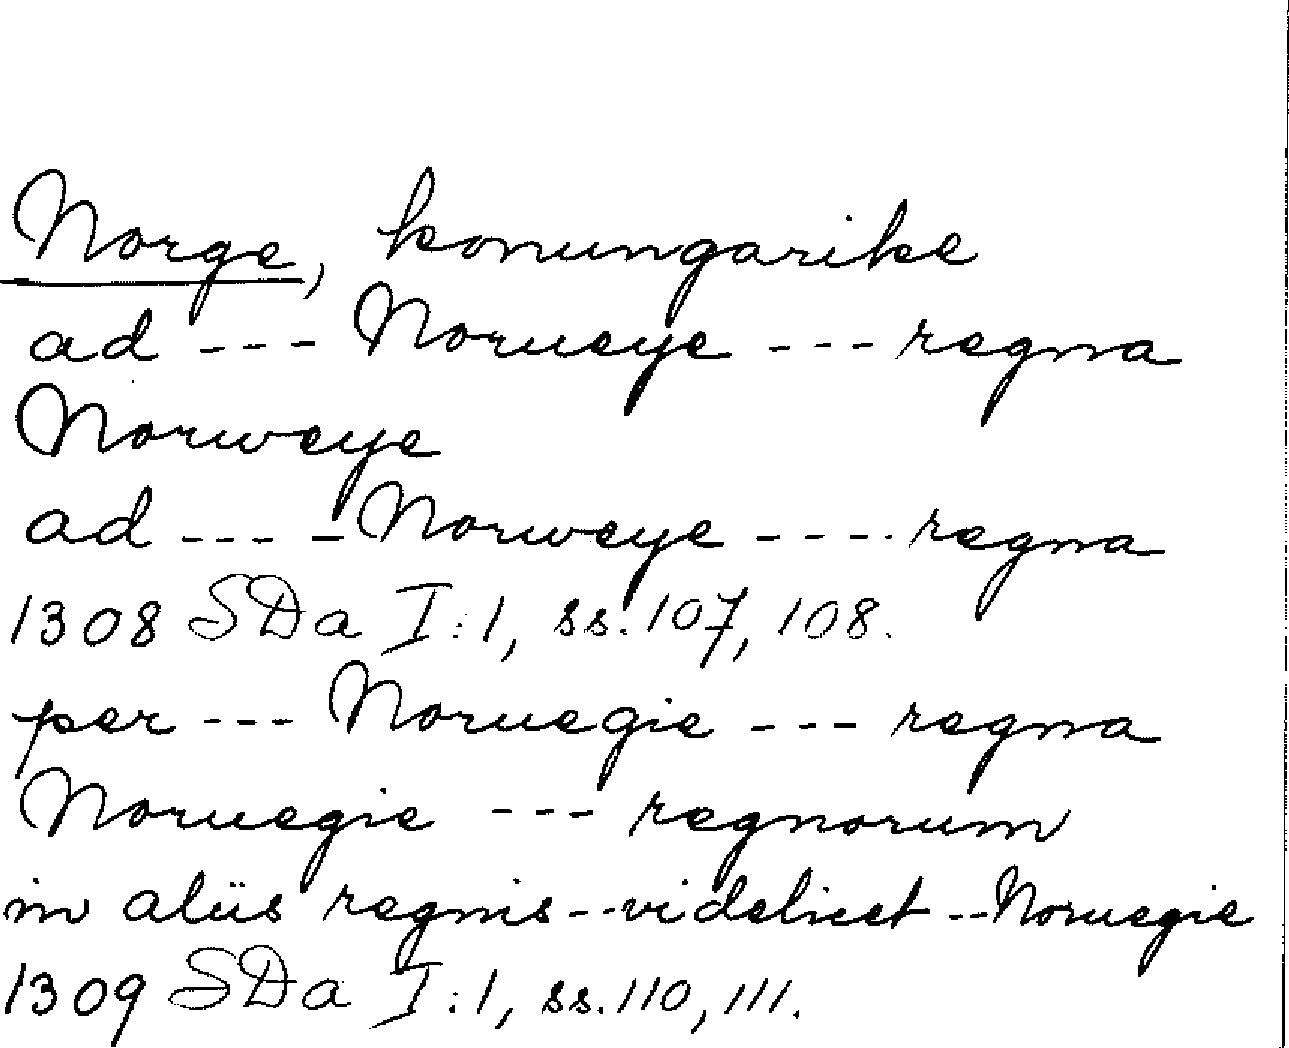 Norge, konungarike
ad --- Norueye --- regna
Norweye
ad ---- Norweye ---- regna
1308 SDa I:1, ss. 107, 108.
per --- Noruegie --- regna
Noruegie --- regnorum
in aliis regnis -- videlicet -- Noruegie
1309 SDa I:1, ss. 110, 111.